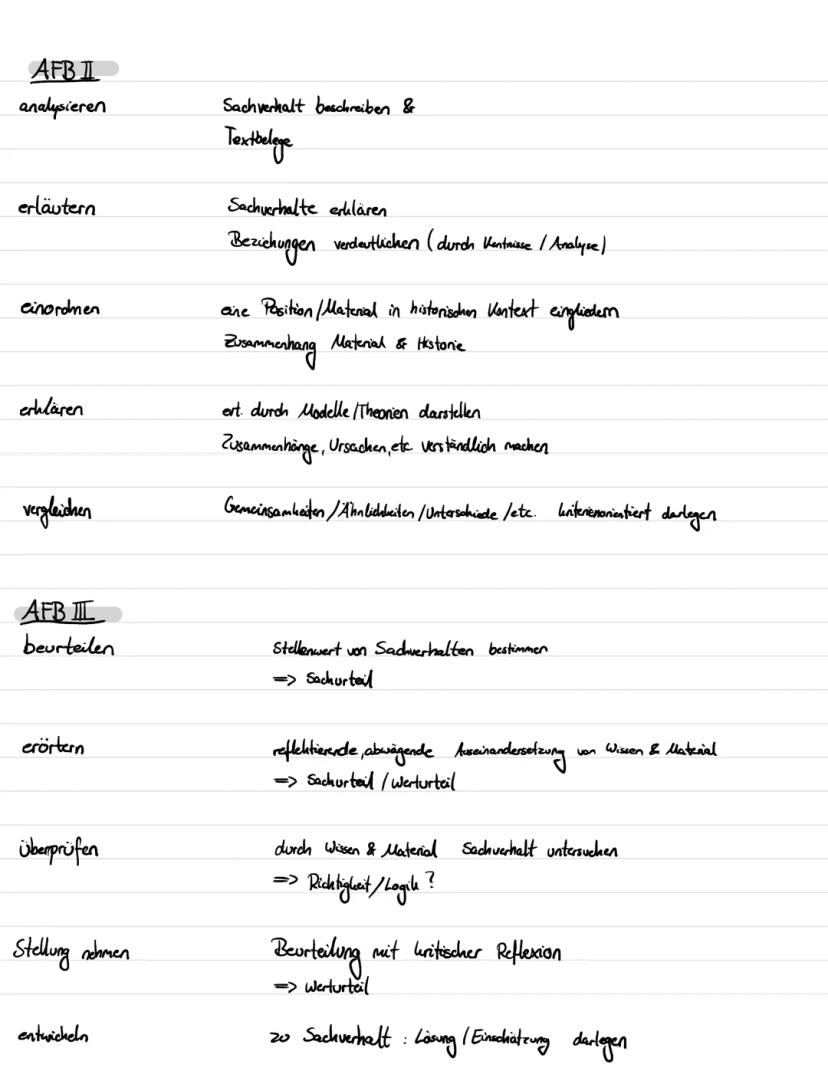 AFB II
analysieren Sachverhalt beschreiben &
Textbelege
erläutern Sachverhalte erklären
Beziehungen verdeutlichen (durch Kentnisse / Analyse)
einordnen eine Position/Material in historischen Kontext eingliedern
Zusammenhang Material & Historie
erklären ert. durch Modelle/Theorien darstellen
Zusammenhänge, Ursachen, etc. verständlich machen
vergleichen Gemeinsamkeiten/Ähnlichkeiten/Unterschiede/etc. kriterienorientiert darlegen
AFB III
beurteilen Stellenwert von Sachverhalten bestimmen
=> Sachurteil
erörtern reflektierende, abwägende Auseinandersetzung von Wissen & Material
=> Sachurteil/Werturteil
überprüfen durch Wissen & Material Sachverhalt untersuchen
=> Richtigkeit/Logik?
Stellung nehmen Beurteilung mit kritischer Reflexion
=> Werturteil
entwickeln zu Sachverhalt: Lösung/Einschätzung darlegen